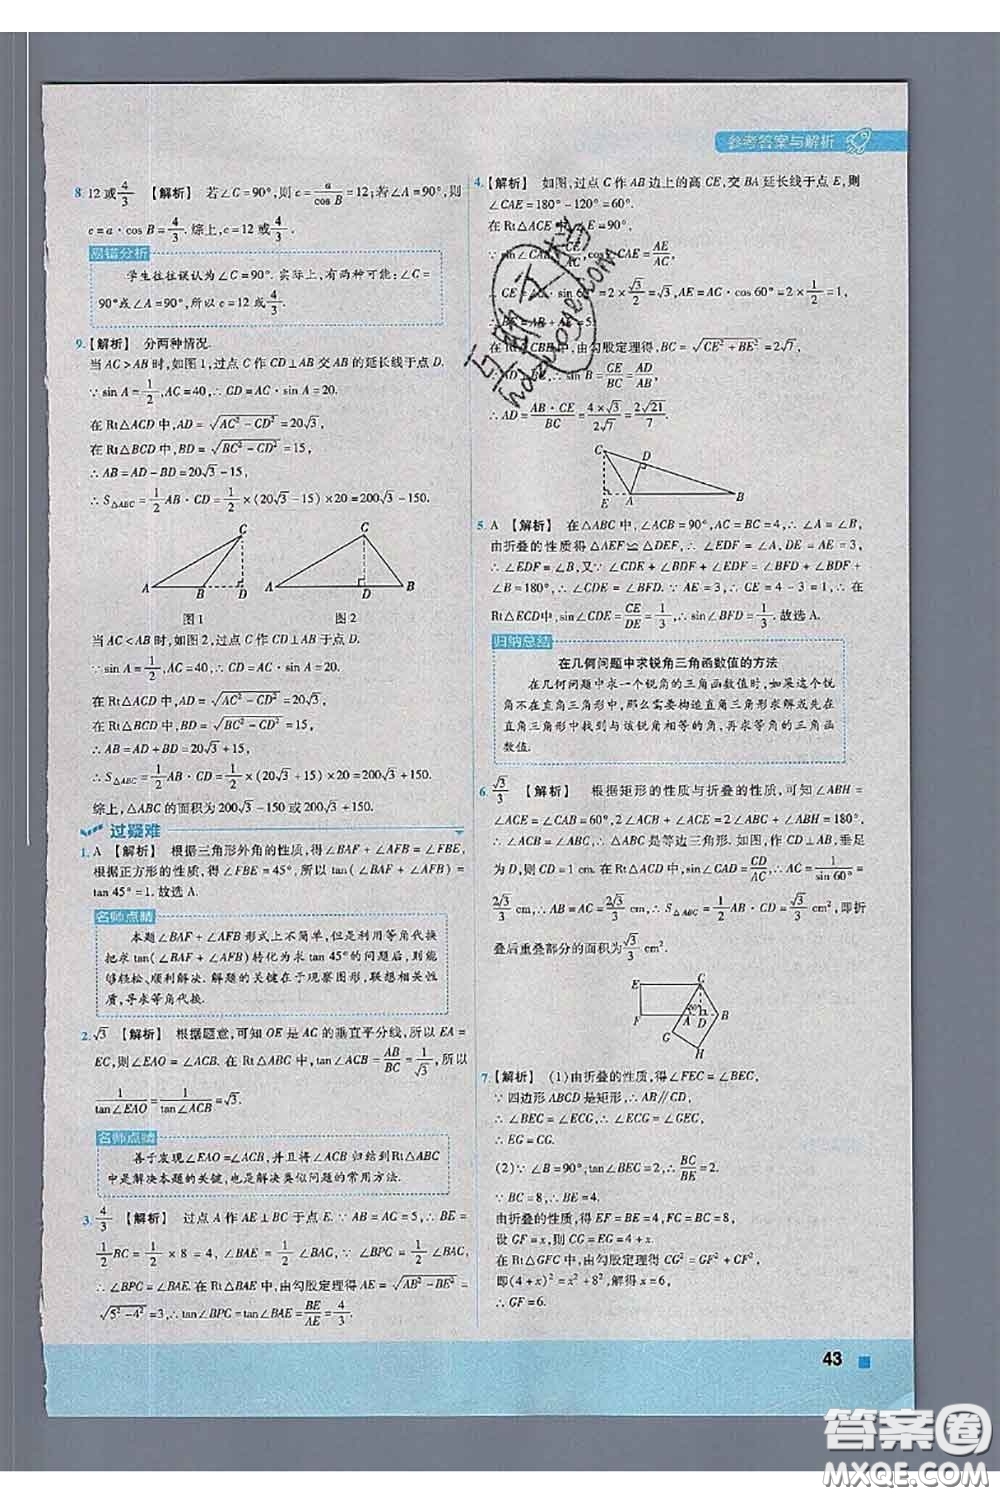 参考答案与解析
8. 12或4/3 【解析】 若∠C=90°,则c=a/cos B=12;若∠A=90°,则
c=a·cos B=4/3.综上,c=12或4/3.
易错分析
学生往往误认为∠C=90°.实际上,有两种可能:∠C=
90°或∠A=90°,所以c=12或4/3.
9.【解析】 分两种情况.
当AC>AB时,如图1,过点C作CD⊥AB交AB的延长线于点D.
∵sin A=1/2,AC=40,∴CD=AC·sin A=20.
在Rt△ACD中,AD=√(AC²-CD²)=20√3,
在Rt△BCD中,BD=√(BC²-CD²)=15,
∴AB=AD-BD=20√3-15,
∴S△ABC=1/2AB·CD=1/2×(20√3-15)×20=200√3-150.
C C
A B D A D B
图1 图2
当AC<AB时,如图2,过点C作CD⊥AB于点D.
∵sin A=1/2,AC=40,∴CD=AC·sin A=20.
在Rt△ACD中,AD=√(AC²-CD²)=20√3,
在Rt△BCD中,BD=√(BC²-CD²)=15,
∴AB=AD+BD=20√3+15,
∴S△ABC=1/2AB·CD=1/2×(20√3+15)×20=200√3+150.
综上,△ABC的面积为200√3-150或200√3+150.
过疑难
1. A 【解析】 根据三角形外角的性质,得∠BAF+∠AFB=∠FBE,
根据正方形的性质,得∠FBE=45°,所以tan(∠BAF+∠AFB)=
tan 45°=1.故选A.
名师点睛
本题∠BAF+∠AFB形式上不简单,但是利用等角代换
把求tan(∠BAF+∠AFB)转化为求tan 45°的问题后,则能
够轻松、顺利解决.解题的关键在于观察图形,联想相关性
质,寻求等角代换.
2. √3 【解析】 根据题意,可知OE是AC的垂直平分线,所以EA=
EC,则∠EAO=∠ACB.在Rt△ABC中,tan∠ACB=AB/BC=1/√3,所以
1/tan∠EAO=1/tan∠ACB=√3.
名师点睛
善于发现∠EAO=∠ACB,并且将∠ACB归结到Rt△ABC
中是解决本题的关键,也是解决类似问题的常用方法.
3. 4/3 【解析】 过点A作AE⊥BC于点E.∵AB=AC=5,∴BE=
1/2BC=1/2×8=4,∠BAE=1/2∠BAC.∵∠BPC=1/2∠BAC,
∴∠BPC=∠BAE.在Rt△BAE中,由勾股定理得AE=√(AB²-BE²)=
√(5²-4²)=3,∴tan∠BPC=tan∠BAE=BE/AE=4/3.
4.【解析】 如图,过点C作AB边上的高CE,交BA延长线于点E,则
∠CAE=180°-120°=60°.
在Rt△ACE中,∠E=90°,
sin∠CAE=CE/AC,cos∠CAE=AE/AC,
∴CE=AC·sin 60°=2×√3/2=√3,AE=AC·cos 60°=2×1/2=1,
∴BE=AB+AE=5.
在Rt△CEB中,由勾股定理得,BC=√(CE²+BE²)=2√7,
∵AD⊥BC,∴sin B=CE/BC=AD/AB,
∴AD=AB·CE/BC=4×√3/2√7=2√21/7.
C D
E A B
5. A 【解析】 在△ABC中,∠ACB=90°,AC=BC=4,∴∠A=∠B,
由折叠的性质得△AEF≌△DEF,∴∠EDF=∠A,DE=AE=3,
∴∠EDF=∠B,又∵∠CDE+∠EDF+∠BDF=∠BFD+∠BDF+
∠B=180°,∴∠CDE=∠BFD.∵AE=3,∴CE=4-3=1,∴在
Rt△ECD中,sin∠CDE=CE/DE=1/3,∴sin∠BFD=1/3.故选A.
归纳总结
在几何问题中求锐角三角函数值的方法
在几何问题中求一个锐角的三角函数值时,如果这个锐
角不在直角三角形中,那么需要构造直角三角形求解或先在
直角三角形中找到与该锐角相等的角,再求等角的三角函
数值.
6. √3/3 【解析】 根据矩形的性质与折叠的性质,可知∠ABH=
∠ACE=∠CAB=60°,2∠ABC+∠ACE=2∠ABC+∠ABH=180°,
∴∠ACB=∠ABC,∴△ABC是等边三角形.如图,作CD⊥AB,垂足
为D,则CD=1 cm.在Rt△CAD中,∵sin∠CAD=CD/AC,∴AC=1/sin 60°=
2√3/3 cm,∴AB=AC=2√3/3 cm,∴S△ABC=1/2AB·CD=√3/3 cm²,即折
叠后重叠部分的面积为√3/3 cm².
E C
F A D B
G
H
60°
7.【解析】 (1)由折叠的性质,得∠FEC=∠BEC,
∵四边形ABCD是矩形,∴AB∥CD,
∴∠BEC=∠ECG,∴∠ECG=∠GEC,
∴EG=CG.
(2)∵∠B=90°,tan∠BEC=2,∴BC/BE=2.
∵BC=8,∴BE=4,
由折叠的性质,得EF=BE=4,FC=BC=8,
设GF=x,则CG=EG=4+x.
在Rt△GFC中,由勾股定理得CG²=GF²+CF²,
即(4+x)²=x²+8²,解得x=6,
∴GF=6.
43
答案圈
MXQE.COM